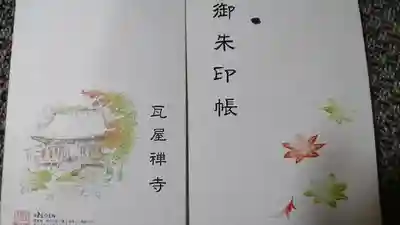 御朱印帳
瓦屋禅寺